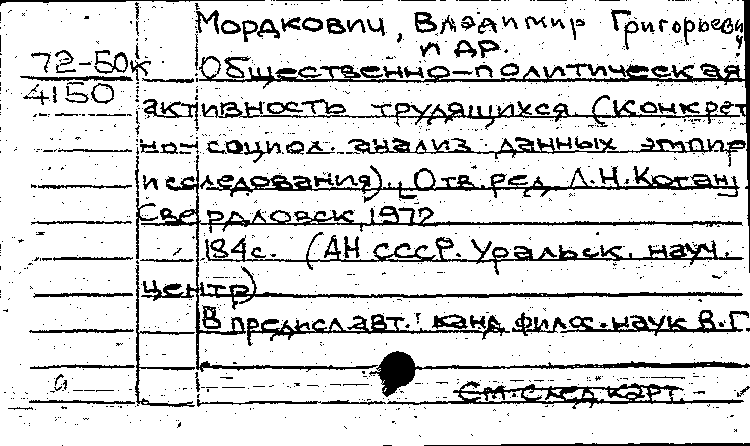 Мордкович, Владимир Григорьевич
и др.
72-50к Общественно-политическая
4150 активность трудящихся (Конкрет
но-социол. анализ данных эмпир
исследования). [Отв. ред. Л.Н.Коган]
Свердловск, 1972
184с. (АН СССР. Уральск. науч.
центр)
В предисл. авт.: канд. филос. наук В.Г.
См. след. карт.